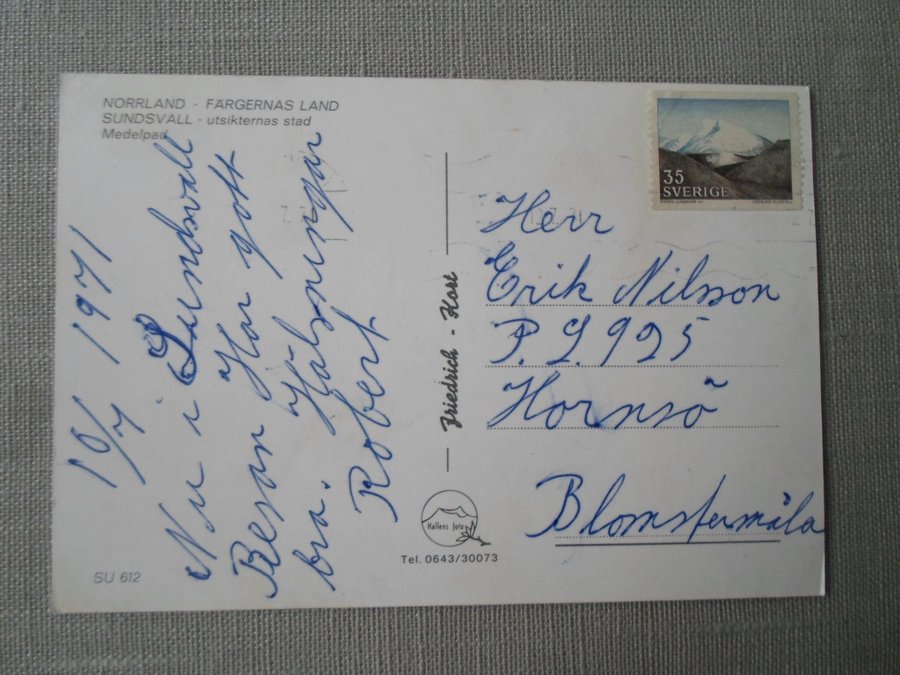 NORRLAND · FÄRGERNAS LAND
SUNDSVALL - utsikternas stad
Medelpad
10/7 1971
Nu i Sundsvall
Resan Har gott
bra. Hälsningar
Robert
SU 612
Friedrich - Kort
Hallens foto
Tel. 0643/30073
35
SVERIGE
Herr
Erik Nilsson
P. L. 925
Hornsö
Blomstermåla